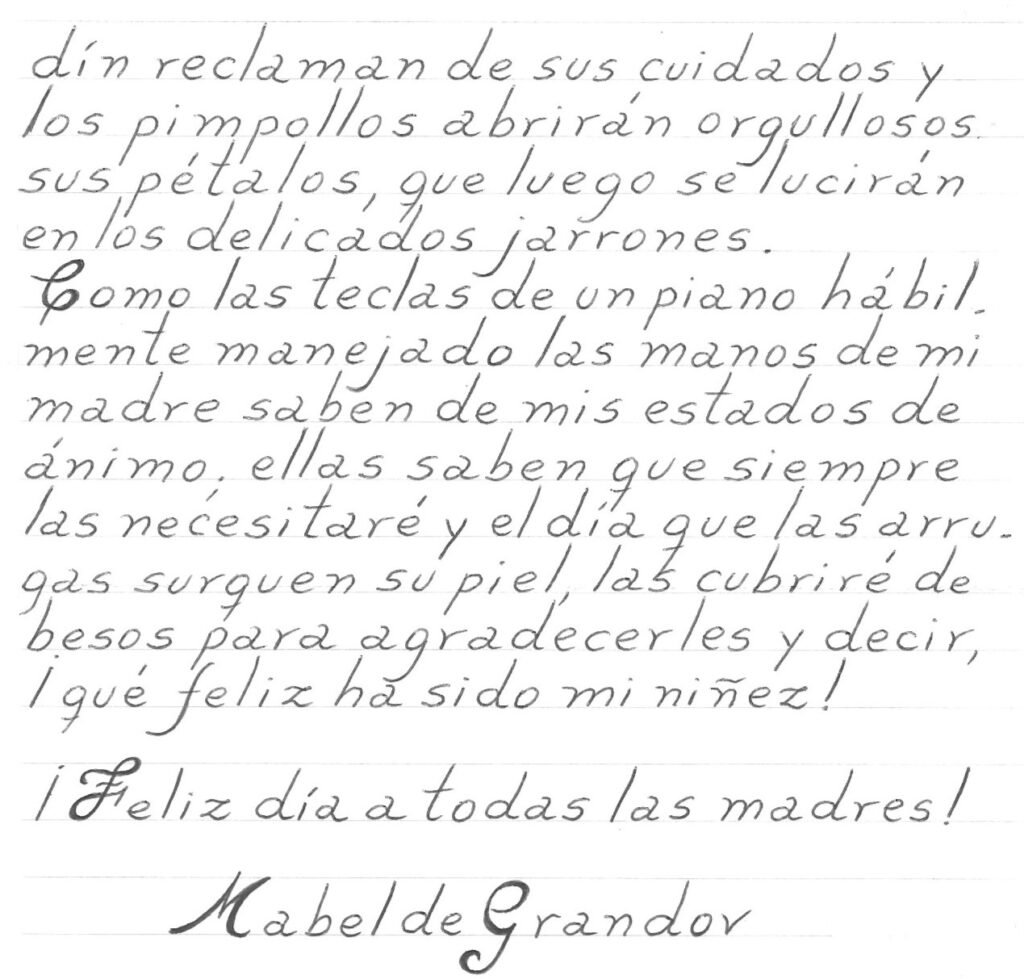 dín reclaman de sus cuidados y
los pimpollos abrirán orgullosos
sus pétalos, que luego se lucirán
en los delicados jarrones.
Como las teclas de un piano hábil-
mente manejado las manos de mi
madre saben de mis estados de
ánimo. ellas saben que siempre
las necesitaré y el día que las arru-
gas surquen su piel, las cubriré de
besos para agradecerles y decir,
¡qué feliz ha sido mi niñez!
¡Feliz día a todas las madres!
Mabel de Grandov